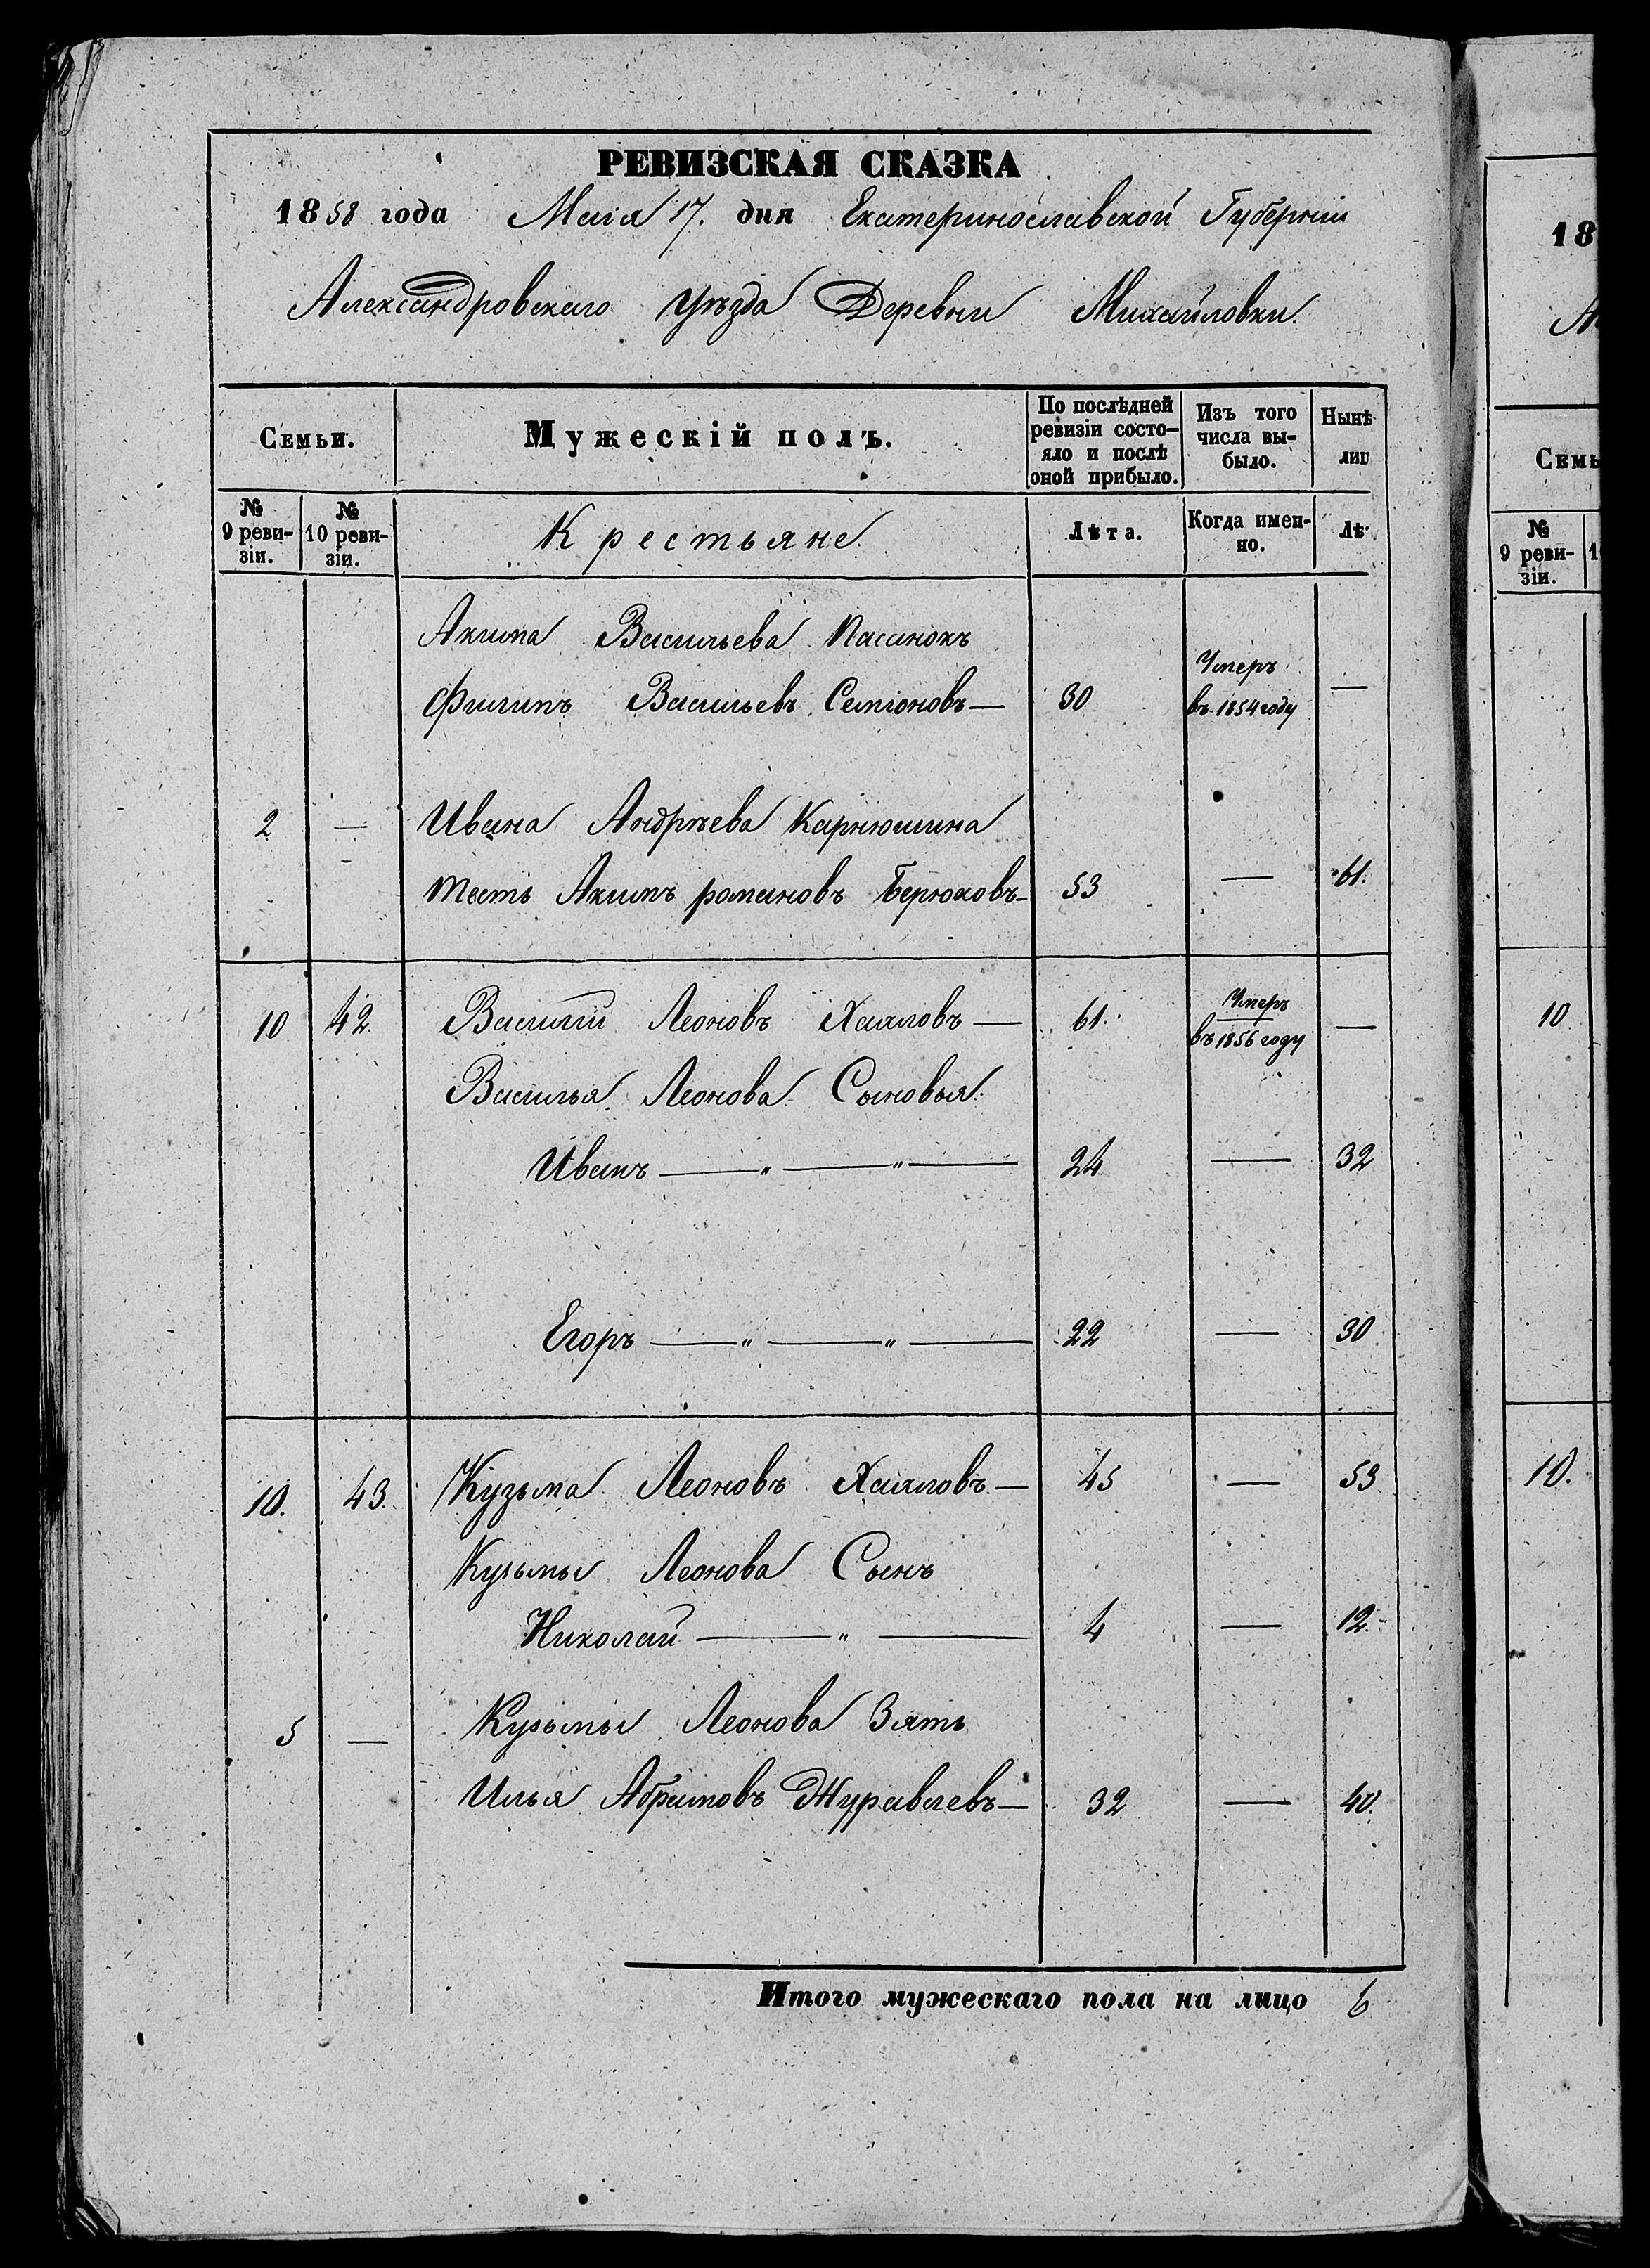 РЕВИЗСКАЯ СКАЗКА
1858 года Маія 17. дня Екатеринославской Губерніи
Александровскаго Уѣзда Деревни Михайловки.
Семьи. Мужескій полъ. По послѣдней ревизіи состо- яло и послѣ оной прибыло. Изъ того числа вы- было. Нынѣ
№ 9 реви- зіи. № 10 реви- зіи. Крестьяне Лѣта. Когда имен- но. Лѣ
Акима Васильева Пасанокъ
Филипъ Васильевъ Семіоновъ — 30 Умеръ въ 1854 году —
2 — Ивана Андрѣева Карнюшина
тесть Акимъ романовъ Берюковъ — 53 — 61.
10 42. Василій Леоновъ Хаяловъ — 61. Умеръ въ 1856 году —
Василья Леонова Сыновья:
Иванъ — " — " — 24 — 32
Егоръ — " — " — 22 — 30
10. 43. Кузьма Леоновъ Хаяловъ. — 45 — 53
Кузьмы Леонова Сынъ
Николай — " — 4 — 12.
5 — Кузьмы Леонова Зять
Илья Абрамовъ Журавлевъ — 32 — 40.
Итого мужескаго пола на лицо 6
18
Семь
№ 9 реви- зіи.
10.
10.